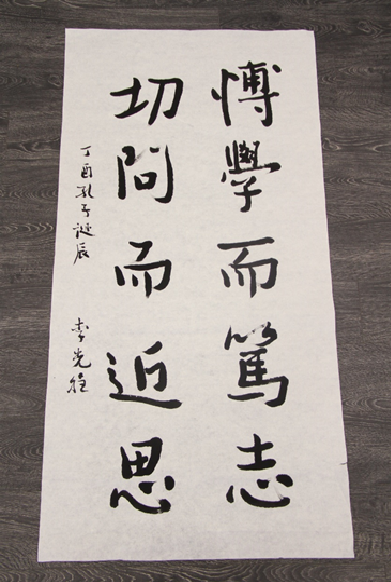 博學而篤志
切問而近思
丁酉孔子誕辰 李光